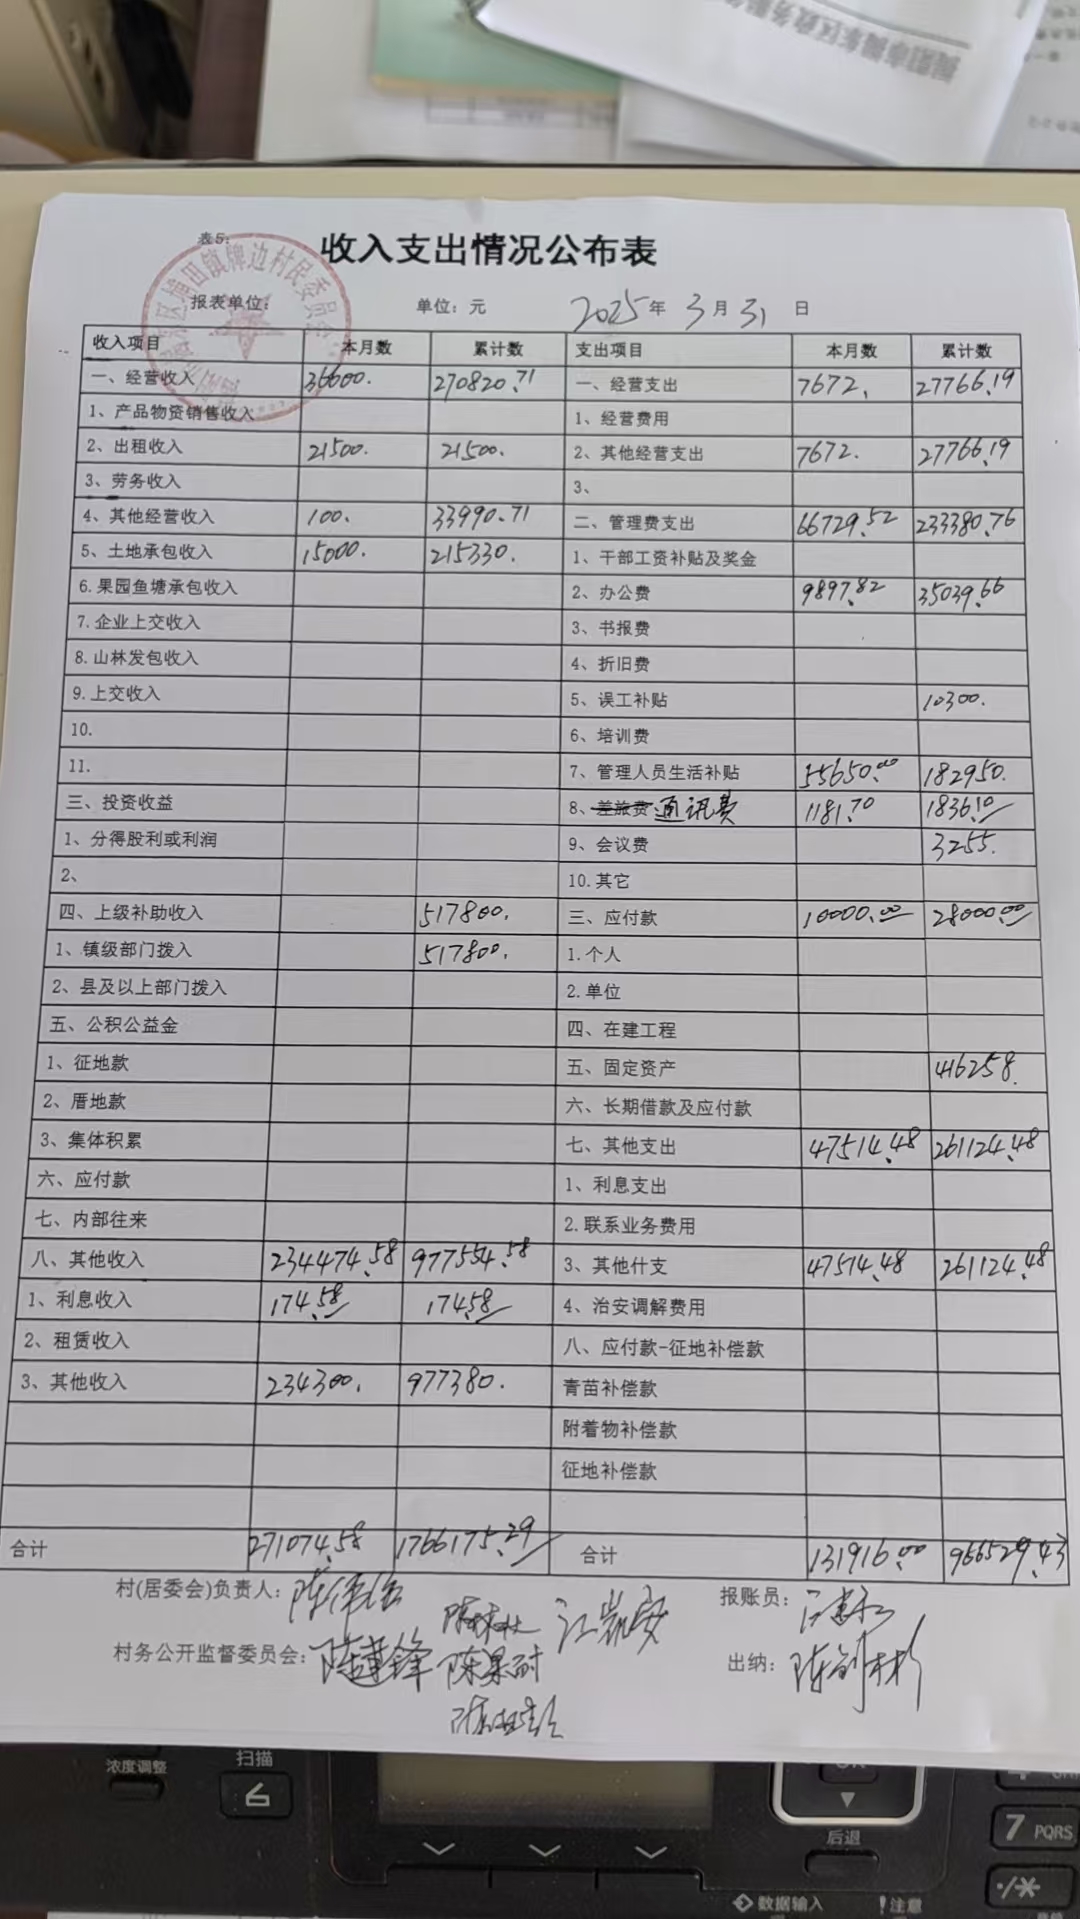 表5:
收入支出情况公布表
报表单位: 单位: 元 2025年 3月 31日
收入项目 本月数 累计数 支出项目 本月数 累计数
一、经营收入 36600. 270820.71 一、经营支出 7672. 27766.19
1、产品物资销售收入 1、经营费用
2、出租收入 21500. 21500. 2、其他经营支出 7672. 27766.19
3、劳务收入 3、
4、其他经营收入 100. 33990.71 二、管理费支出 66729.52 233380.76
5、土地承包收入 15000. 215330. 1、干部工资补贴及奖金
6.果园鱼塘承包收入 2、办公费 9897.82 35039.66
7.企业上交收入 3、书报费
8.山林发包收入 4、折旧费
9.上交收入 5、误工补贴 10300.
10. 6、培训费
11. 7、管理人员生活补贴 55650.00 182950.
三、投资收益 8、差旅费 通讯费 1181.70 1836.10
1、分得股利或利润 9、会议费 3255.
2、 10.其它
四、上级补助收入 517800. 三、应付款 10000.00 28000.00
1、镇级部门拨入 517800. 1.个人
2、县及以上部门拨入 2.单位
五、公积公益金 四、在建工程
1、征地款 五、固定资产 416258.
2、厝地款 六、长期借款及应付款
3、集体积累 七、其他支出 47514.48 261124.48
六、应付款 1、利息支出
七、内部往来 2.联系业务费用
八、其他收入 234474.58 977554.58 3、其他什支 47514.48 261124.48
1、利息收入 174.58 174.58 4、治安调解费用
2、租赁收入 八、应付款-征地补偿款
3、其他收入 234300. 977380. 青苗补偿款
附着物补偿款
征地补偿款
合计 271074.58 1766175.29 合计 131916.00 966529.43
村(居委会)负责人: 报账员:
江岚安
村务公开监督委员会: 陈莲锋 陈果耐 出纳:
浓度调整
扫描
后退
7 PQRS
数据输入
注意